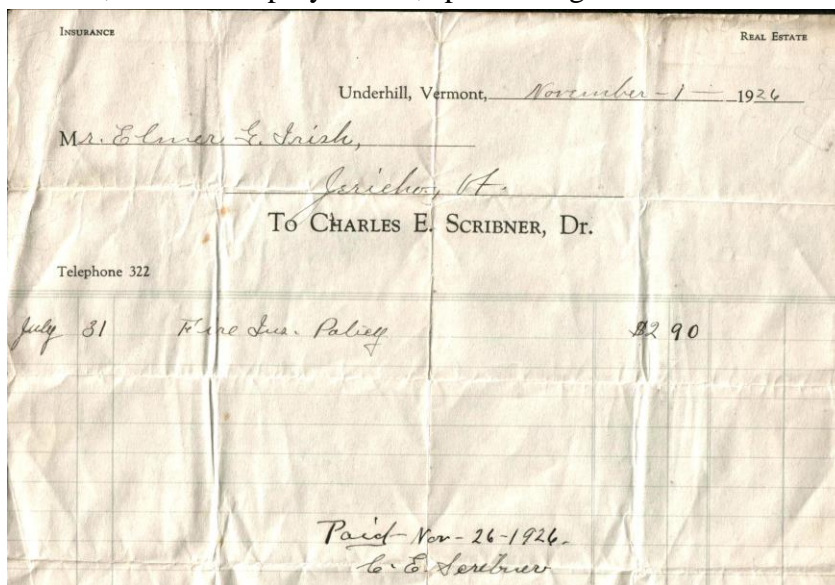 INSURANCE REAL ESTATE
Underhill, Vermont, November - 1 - 1926
Mr. Elmer G. Irish,
Jericho, Vt.
TO CHARLES E. SCRIBNER, Dr.
Telephone 322
July 31 Fire Ins. Policy $2 90
Paid - Nov - 26 - 1926.
C. E. Scribner